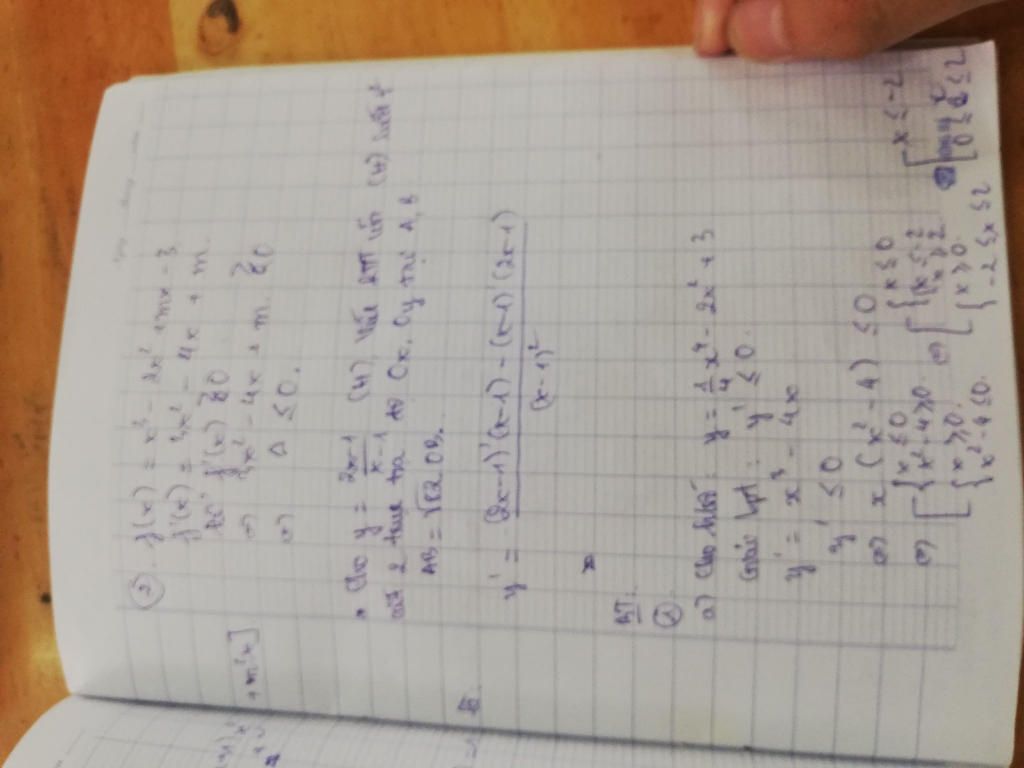 ② f(x) = x³ - 2x² + mx - 3
f'(x) = 3x² - 4x + m
f'(x) ≥ 0
⇔ 3x² - 4x + m ≥ 0
⇔ Δ ≤ 0.
* Cho y = \frac{2x-1}{x-1} (H). Viết PTTT (H) biết t²
cắt 2 trục tọa độ Ox, Oy tại A, B
AB = √82 OB.
y' = \frac{(2x-1)'(x-1) - (x-1)'(2x-1)}{(x-1)²}
BT:
①
a) Cho h/số: y = \frac{1}{4}x⁴ - 2x² + 3
Giải bpt: y' ≤ 0
y' = x³ - 4x
y' ≤ 0
⇔ x(x² - 4) ≤ 0
⇔ [ { x ≤ 0
x² - 4 ≥ 0
{ x ≥ 0
x² - 4 ≤ 0
⇔ [ { x ≤ 0
[ x ≤ -2
x ≥ 2
{ x ≥ 0
-2 ≤ x ≤ 2
[ x ≤ -2
0 ≤ x ≤ 2
+ m²x]